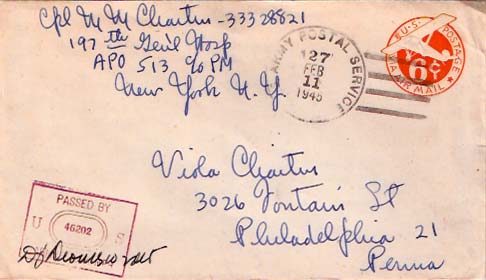 Cpl M M Chaitin - 33328821
197th Gen'l Hosp
APO 513 c/o PM
New York N. Y.
ARMY POSTAL SERVICE
127
FEB
11
1945
U.S. POSTAGE
6¢
VIA AIR MAIL
Viola Chaitin
3026 Fontain St
Philadelphia 21
Penna
PASSED BY
U S
46202